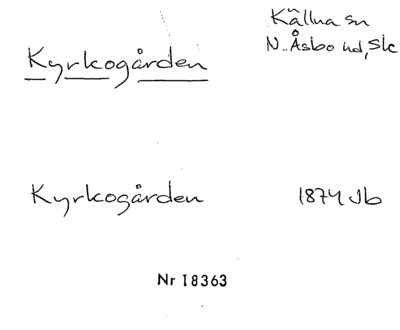 Kyrkogården
Källna sn
N. Åsbo hd, Sk
Kyrkogården
1874 Jb
Nr 18363